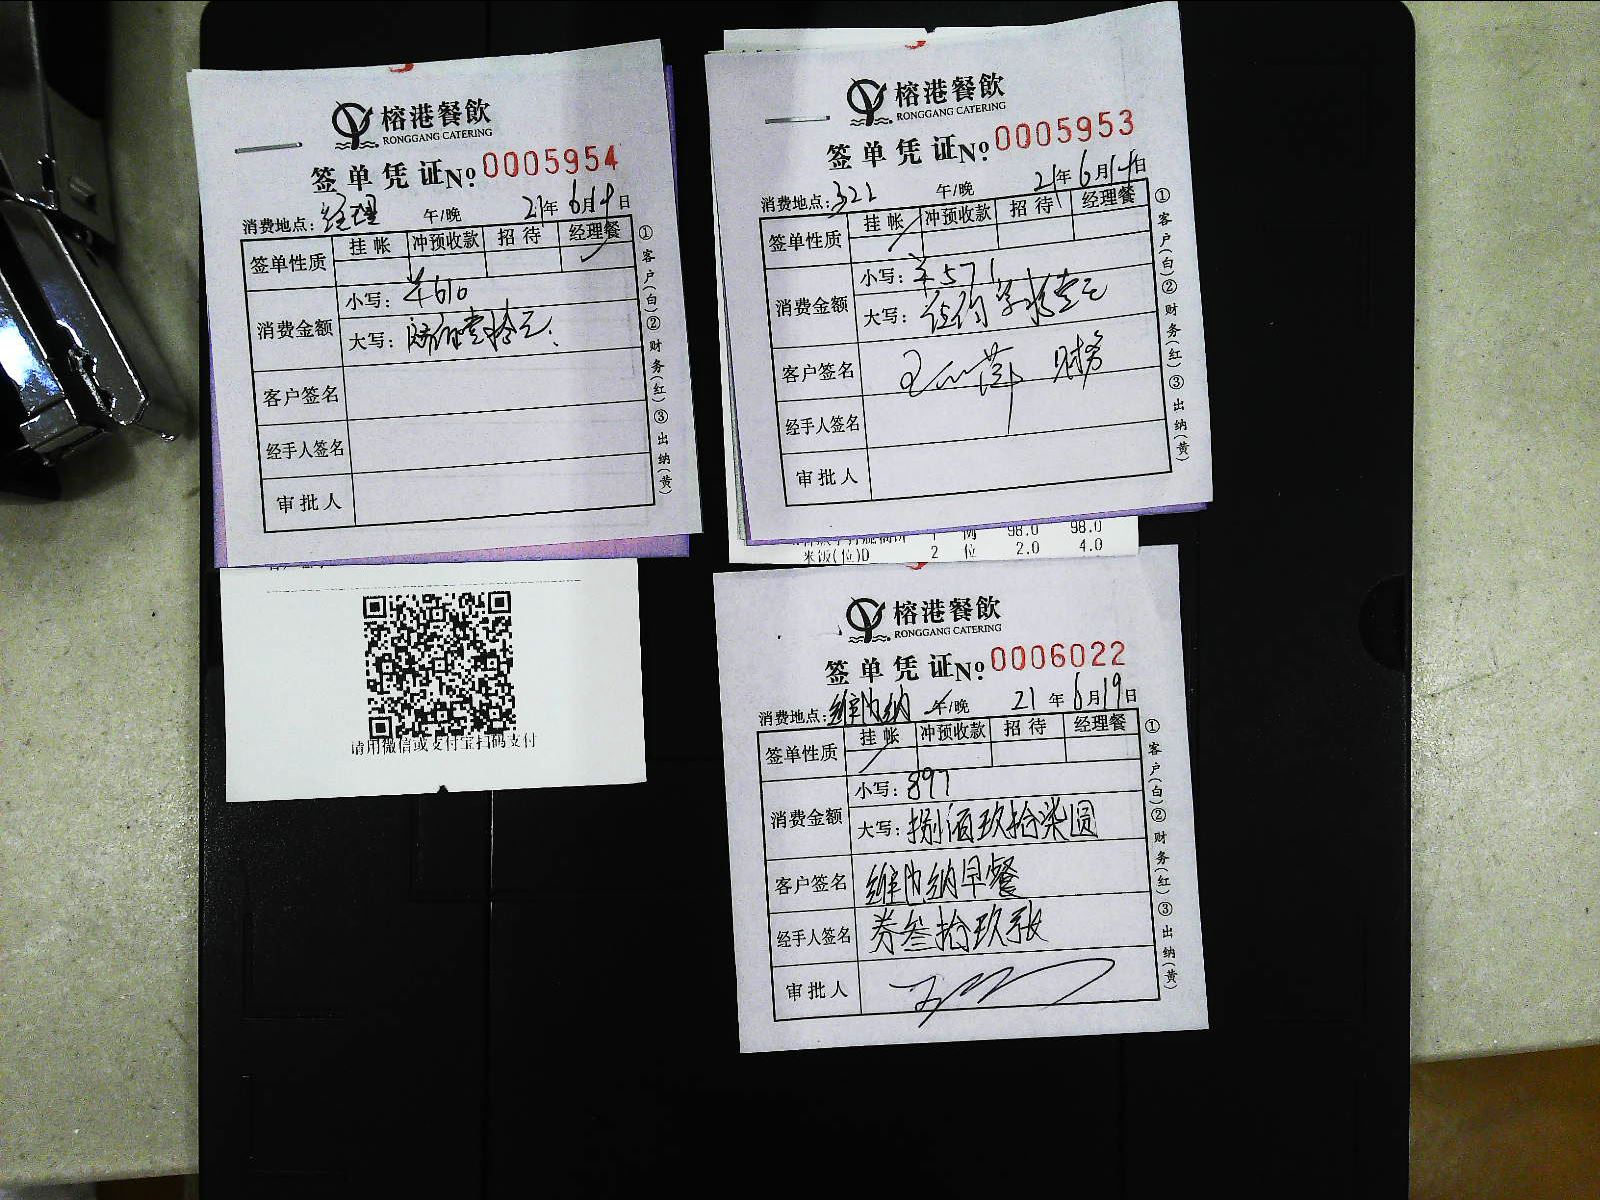 榕港餐飲
RONGGANG CATERING
签单凭证No. 0005954
消费地点：经理 午/晚 21年6月19日
签单性质 挂帐 冲预收款 招待 经理餐
消费金额 小写：￥610
大写：陆佰壹拾元.
客户签名
经手人签名
审批人
①客户(白)②财务(红)③出纳(黄)
请用微信或支付宝扫码支付
榕港餐飲
RONGGANG CATERING
签单凭证No. 0005953
消费地点：322 午/晚 21年6月19日
签单性质 挂帐 冲预收款 招待 经理餐
消费金额 小写：￥571
大写：伍佰柒拾壹元
客户签名 财务
经手人签名
审批人
①客户(白)②财务(红)③出纳(黄)
98.0 98.0
米饭(位)D 2 位 2.0 4.0
榕港餐飲
RONGGANG CATERING
签单凭证No. 0006022
消费地点：维也纳 午/晚 21年6月19日
签单性质 挂帐 冲预收款 招待 经理餐
消费金额 小写：897
大写：捌佰玖拾柒圆
客户签名 维也纳早餐
经手人签名 券叁拾玖张
审批人
①客户(白)②财务(红)③出纳(黄)